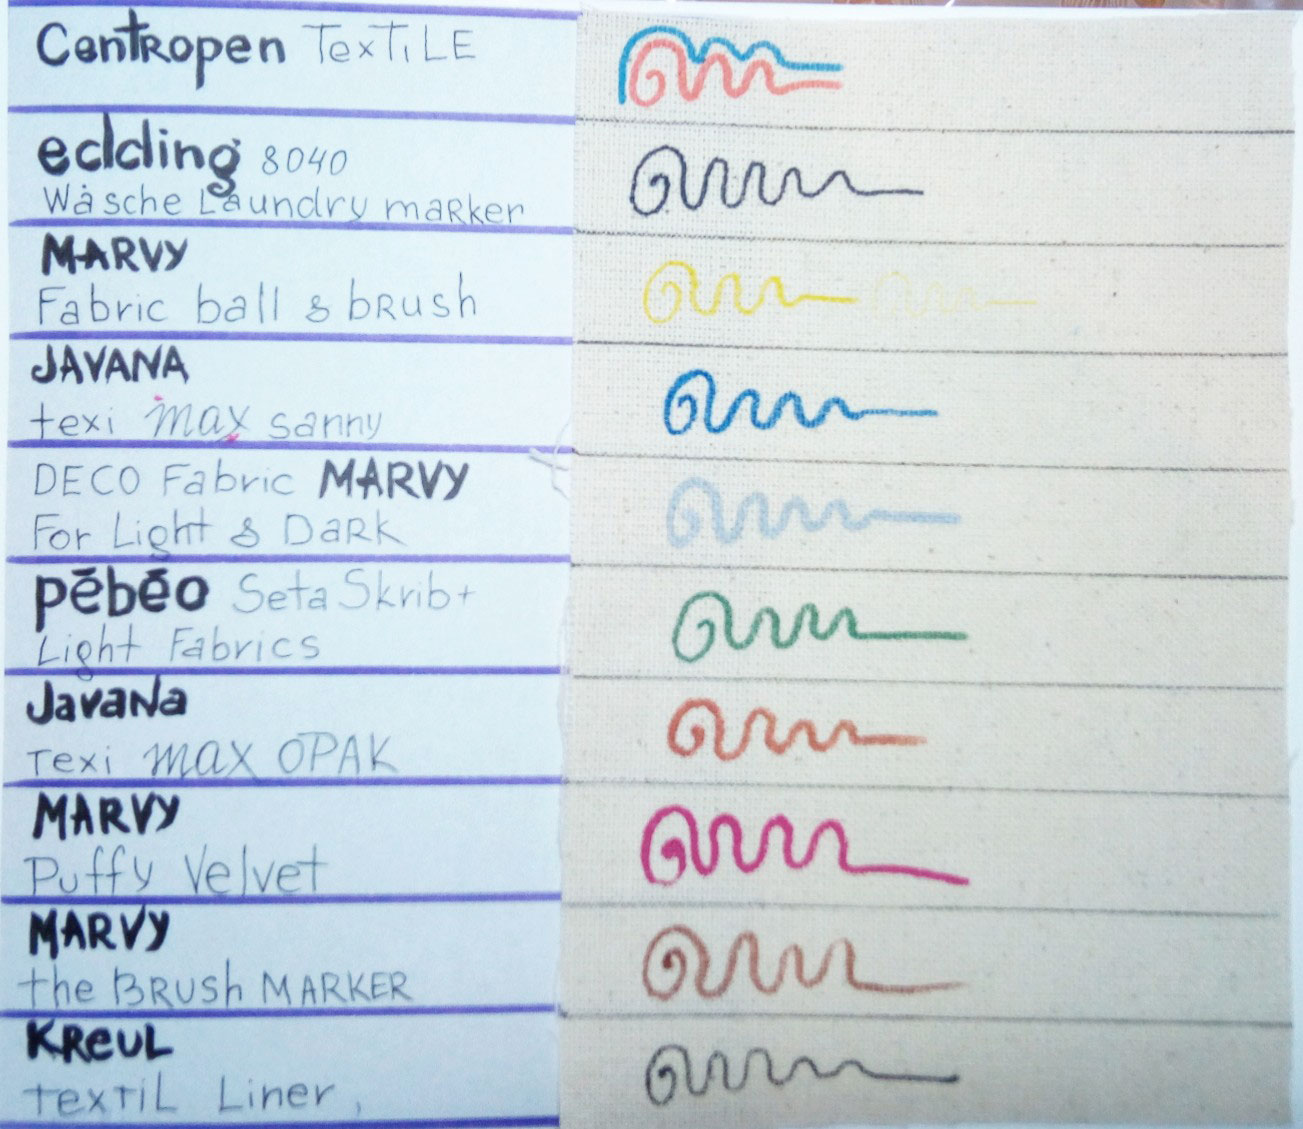 Centropen TexTiLE
edding 8040
Wäsche Laundry marker
MARVY
Fabric ball & bRush
JAVANA
texi max sanny
DECO Fabric MARVY
For Light & DaRK
pēbēo Seta Skrib+
Light Fabrics
JavaNa
Texi max OPAK
MARVY
Puffy Velvet
MARVY
the BRUSh MARKER
KReUL
TexTiL Liner,